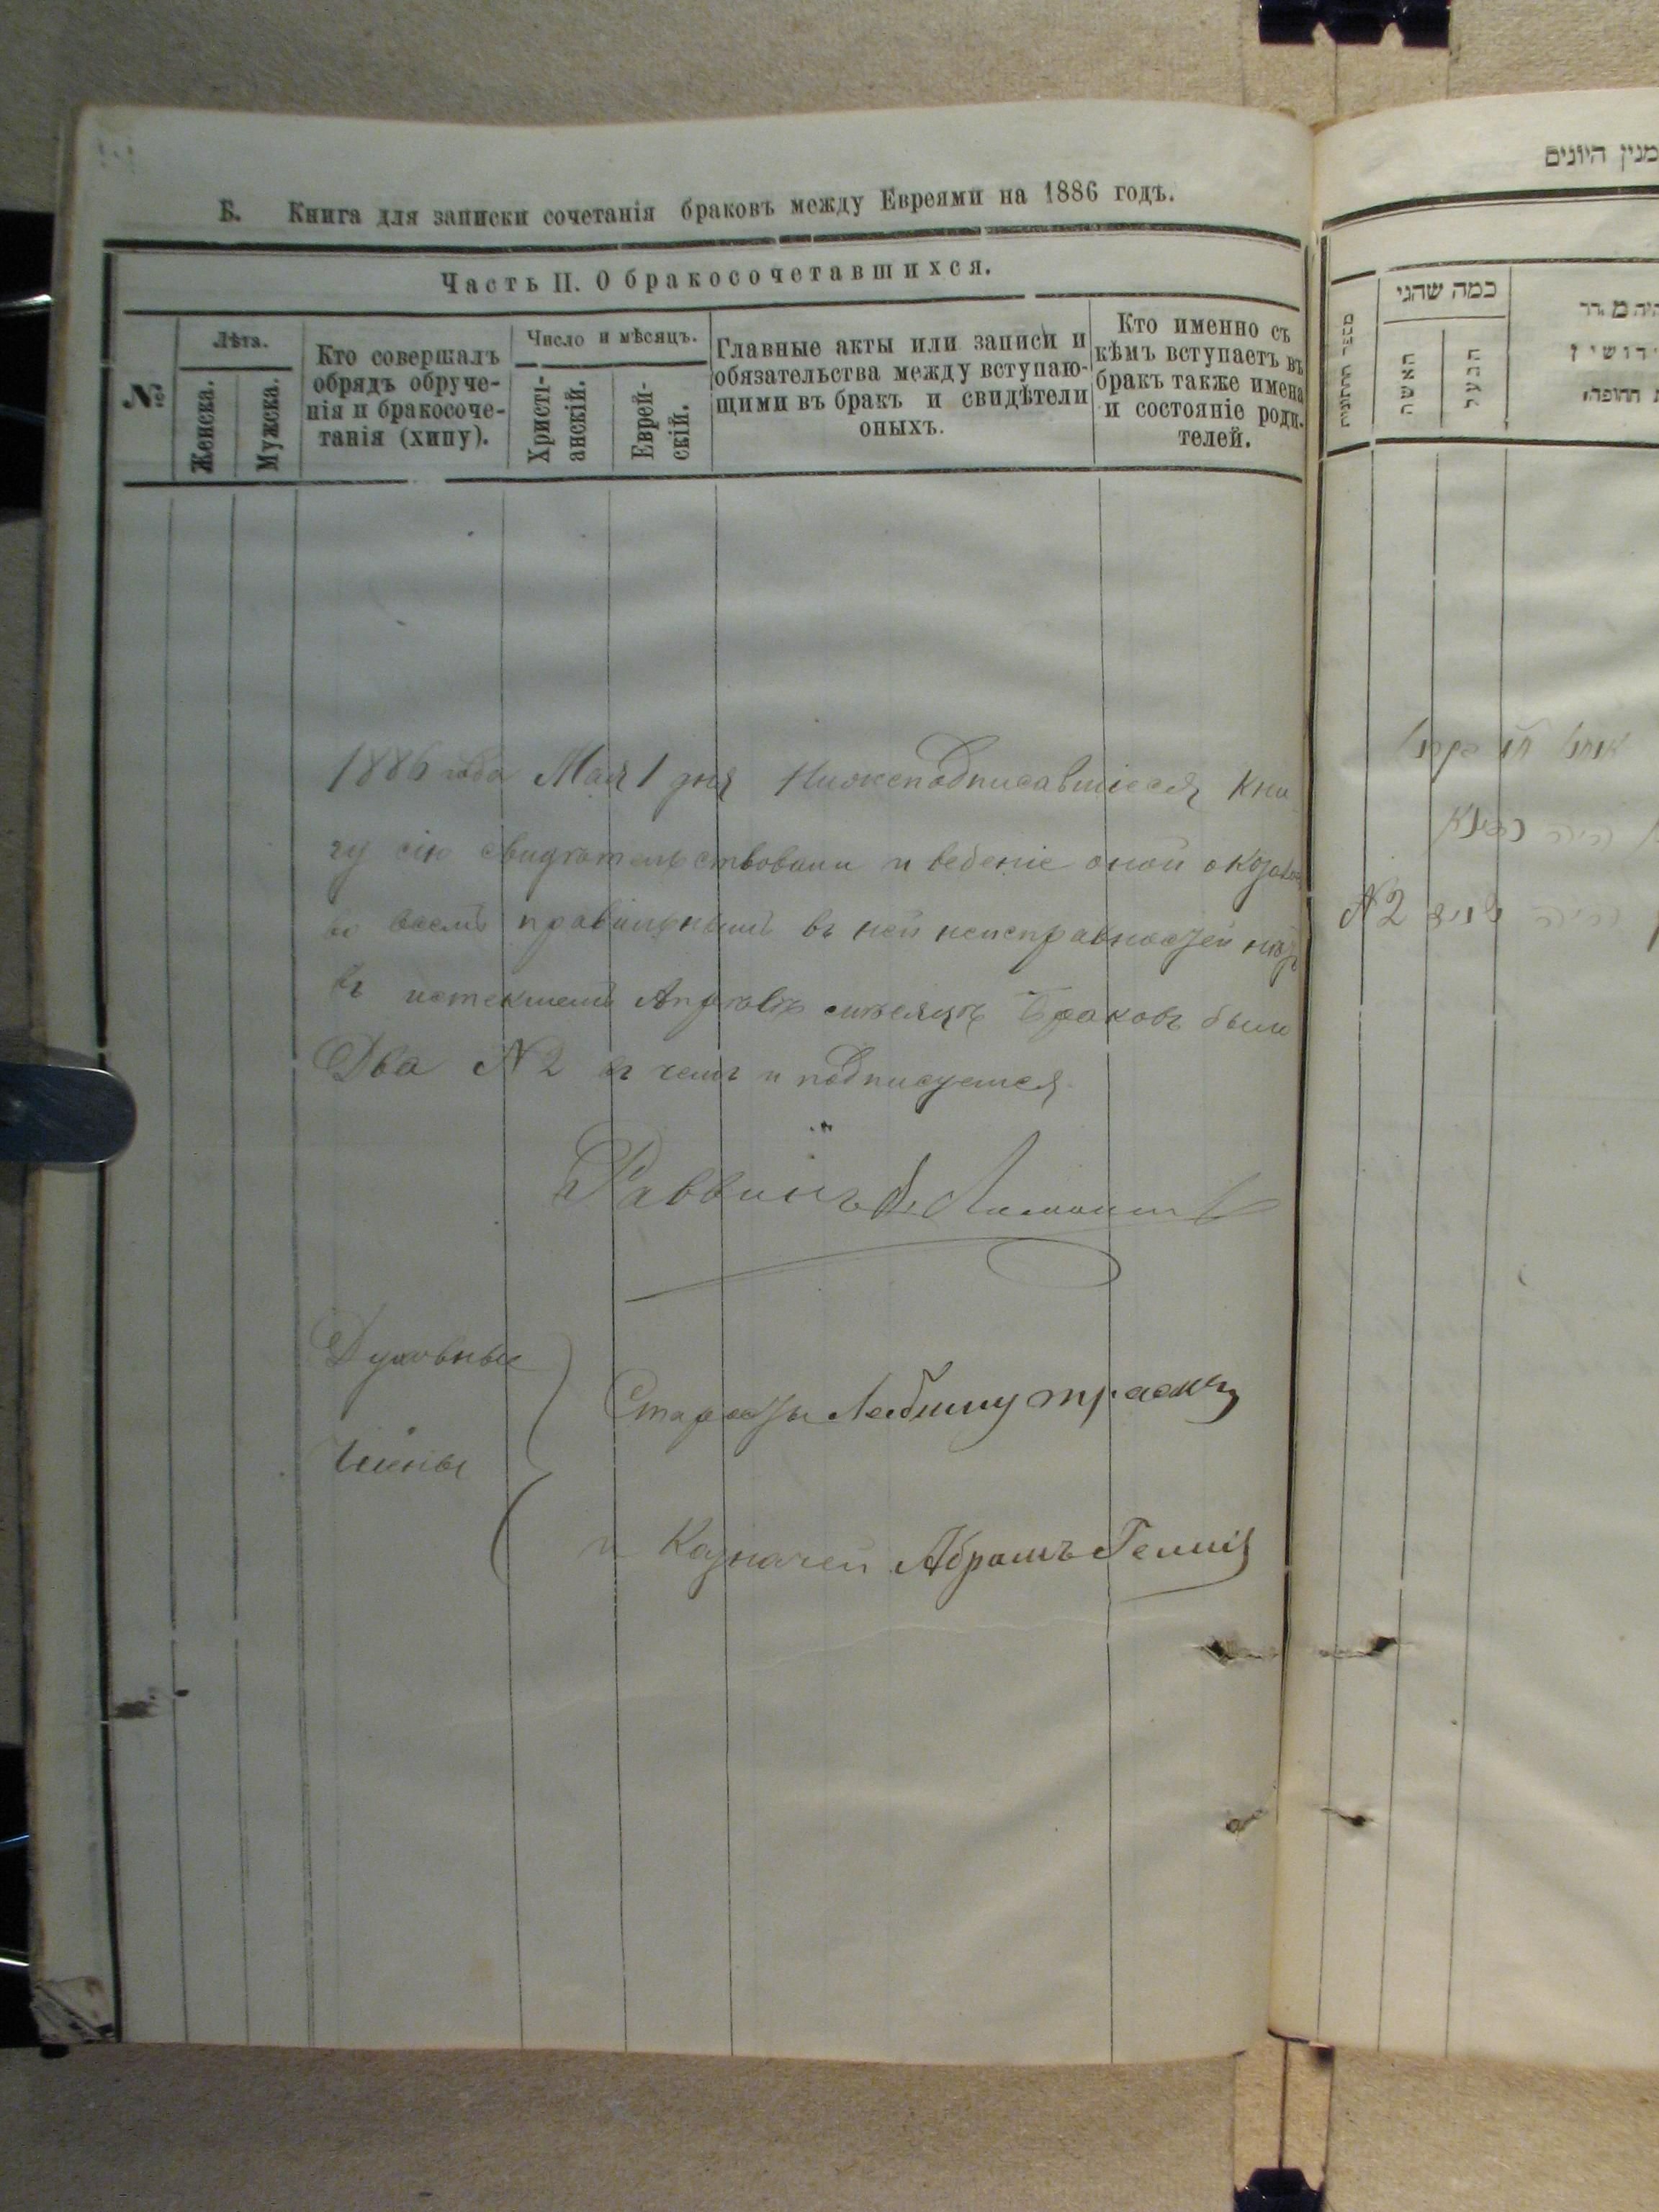 Б. Книга для записки сочетанія браковъ между Евреями на 1886 годъ.
Часть II. О бракосочетавшихся.
№
Лѣта.
Женска.
Мужска.
Кто совершалъ
обрядъ обруче-
нія и бракосоче-
танія (хипу).
Число и мѣсяцъ.
Христі-
анскій.
Еврей-
скій.
Главные акты или записи и
обязательства между вступаю-
щими въ бракъ и свидѣтели
оныхъ.
Кто именно съ
кѣмъ вступаетъ въ
бракъ также имена
и состояніе роди-
телей.
1886 года Мая 1 дня Нижеподписавшіеся кни
гу сію свидѣтельствовали и веденіе оной
во всемъ правильнымъ въ ней неисправностей нѣтъ
въ истекшемъ Апрѣлѣ мѣсяцѣ Браковъ было
Два N 2 въ чемъ и подписуемся
Раввинъ
Духовные
Старосты
Члены
и Казначей Абрамъ
מנין היונים
כמה שהגי
האשה
הבעל
ירושין
N 2